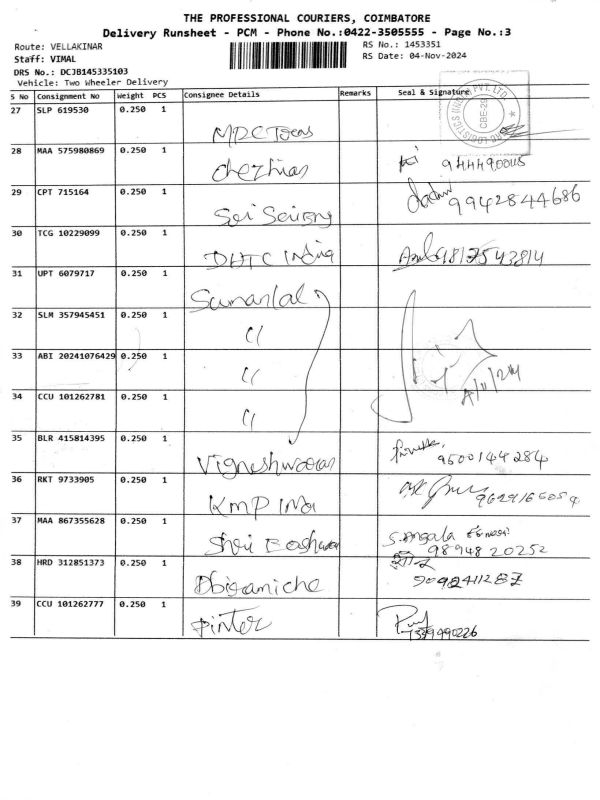 THE PROFESSIONAL COURIERS, COIMBATORE
Delivery Runsheet - PCM - Phone No.:0422-3505555 - Page No.:3
Route: VELLAKINAR
RS No.: 1453351
Staff: VIMAL
RS Date: 04-Nov-2024
DRS No.: DCJB145335103
Vehicle: Two Wheeler Delivery
S No Consignment No Weight PCS Consignee Details Remarks Seal & Signature
27 SLP 619530 0.250 1
CBE-29
28 MAA 575980869 0.250 1 Chezhian
29 CPT 715164 0.250 1 Sai 9942844686
30 TCG 10229099 0.250 1 DHTC India 9817543814
31 UPT 6079717 0.250 1 Sumanlal
32 SLM 357945451 0.250 1 "
33 ABI 20241076429 0.250 1 "
34 CCU 101262781 0.250 1 "
35 BLR 415814395 0.250 1 Vigneshwaran 9500144284
36 RKT 9733905 0.250 1 KMP
37 MAA 867355628 0.250 1 Shri 9894820252
38 HRD 312851373 0.250 1
39 CCU 101262777 0.250 1 Pinter 7339490226